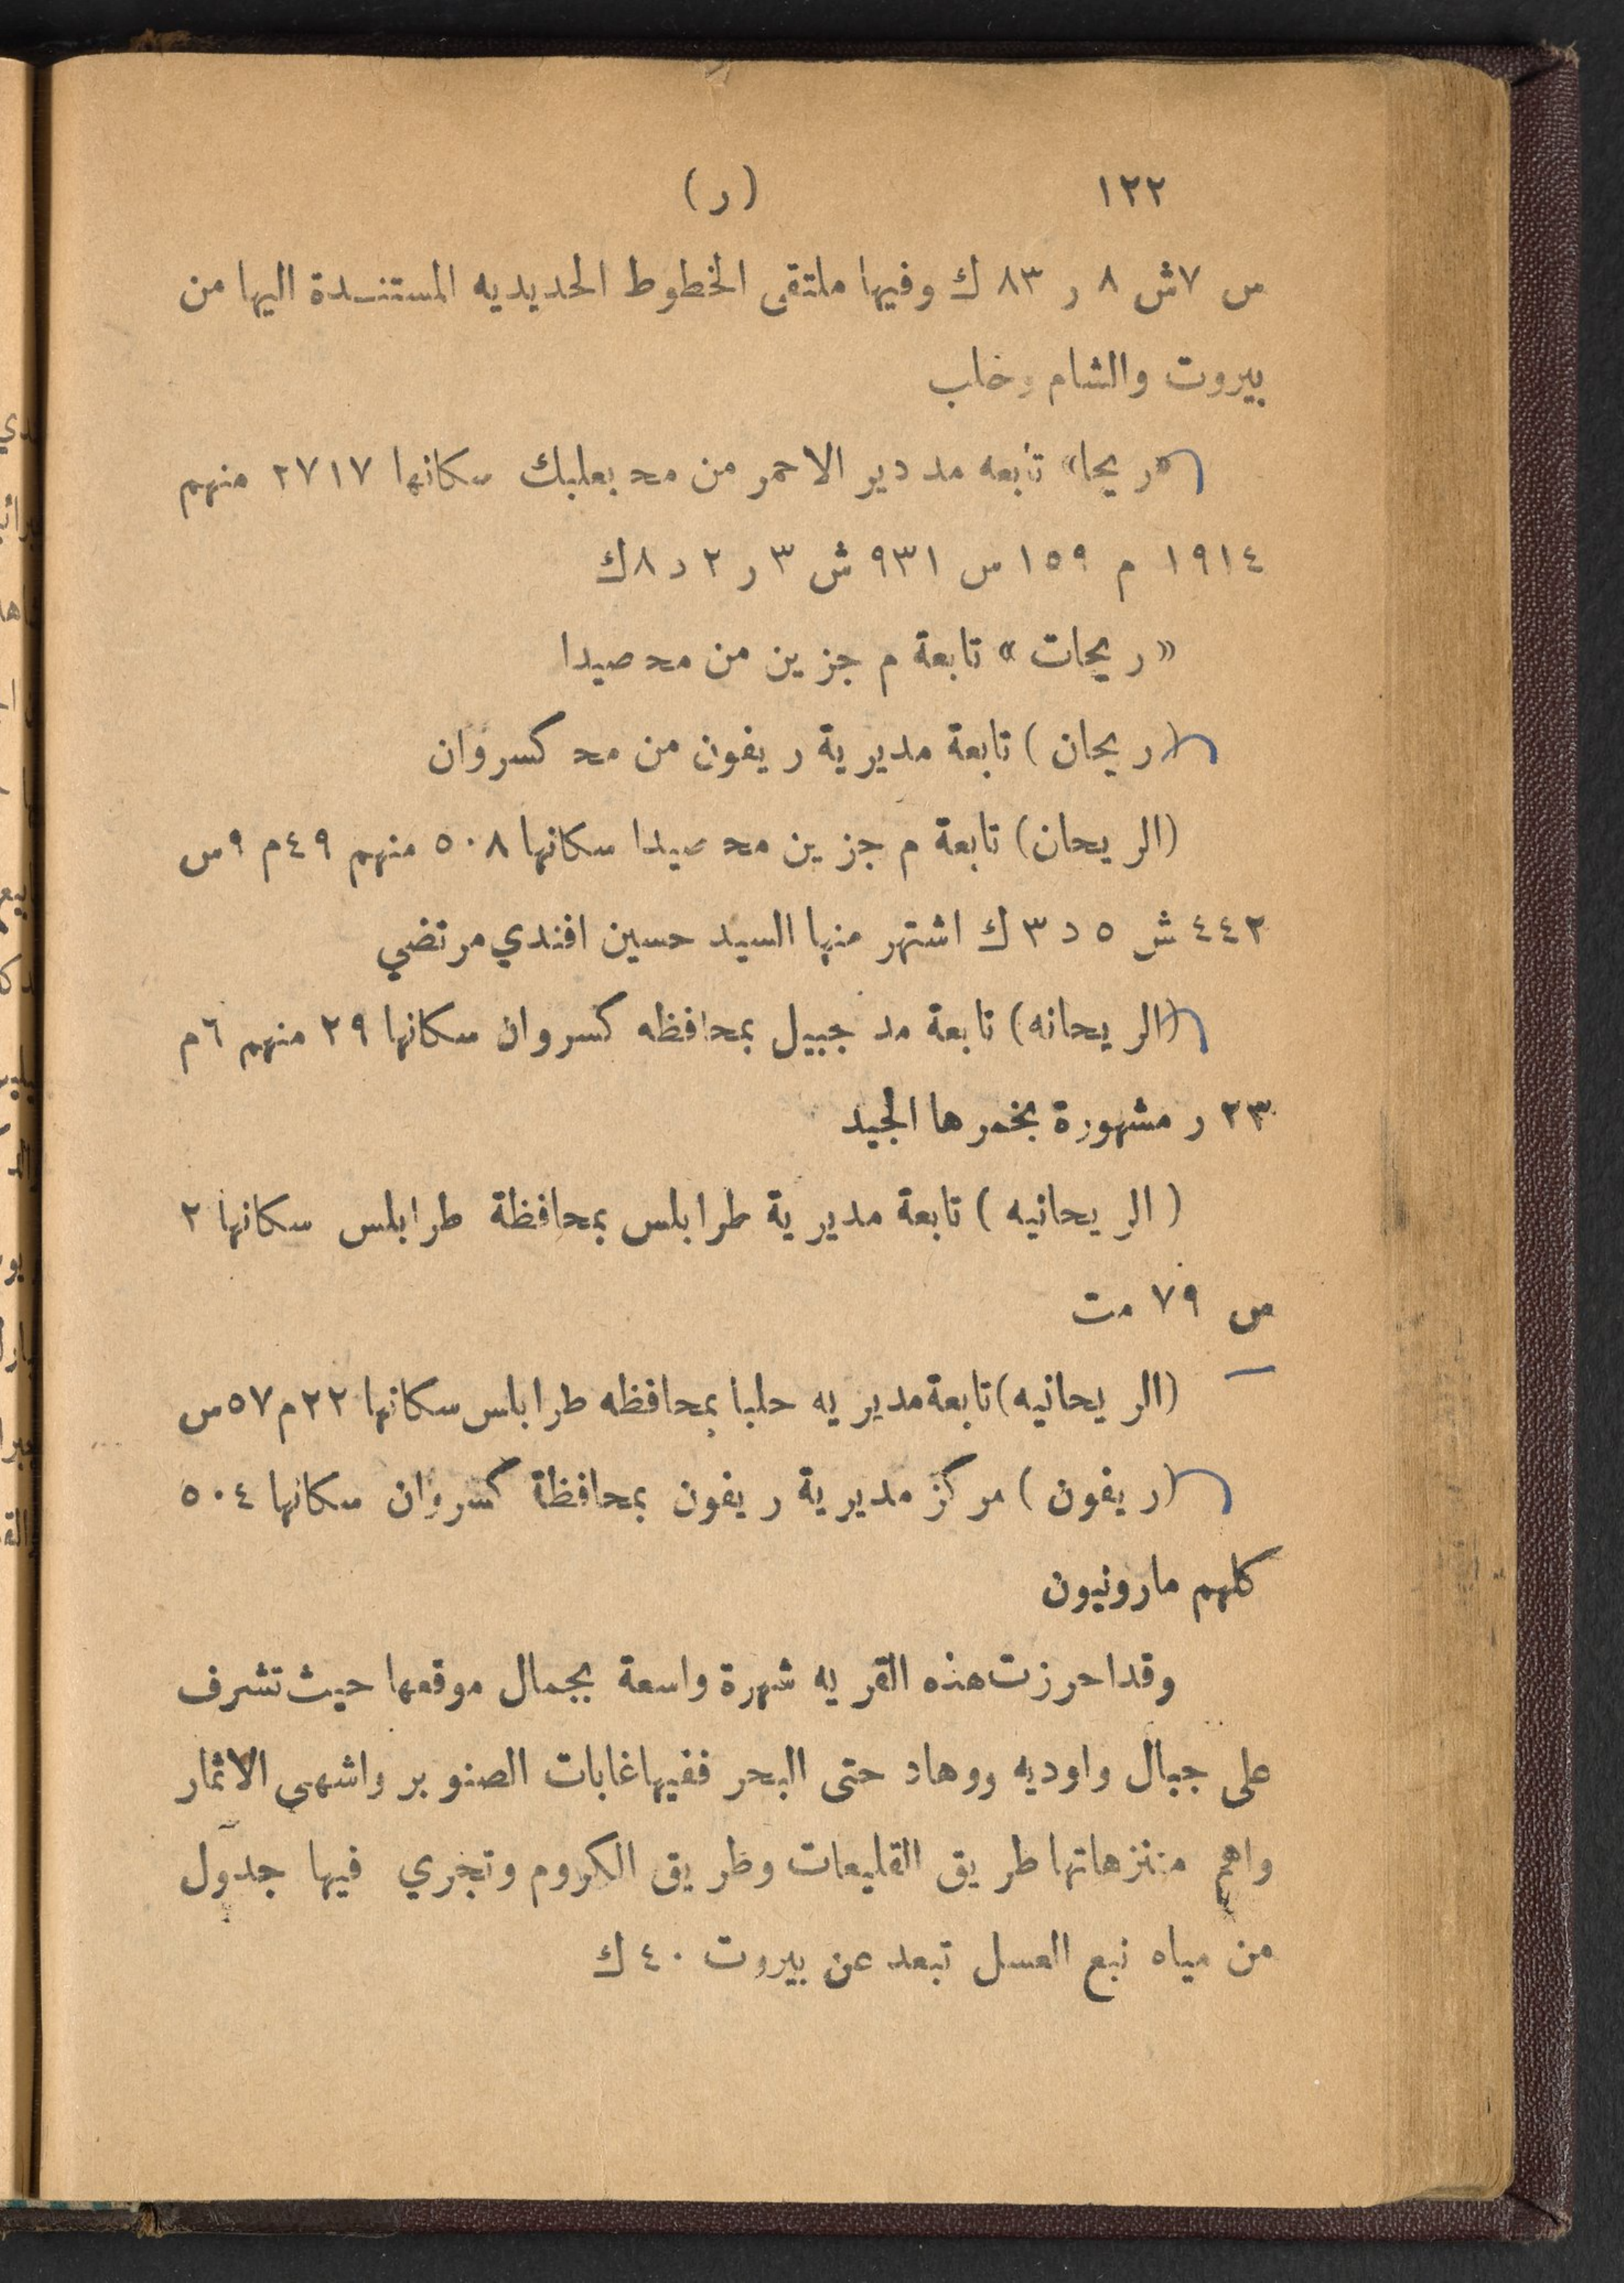 ١٢٢ (ر)
س ٧ش ٨ ر ٨٣ ك وفيها ملتقى الخطوط الحديديه المستندة اليها من
بيروت والشام وخلب
«ريحا» تابعه مد دير الاحمر من محـ بعلبك سكانها ٢٧١٧ منهم
١٩١٤ م ١٥٩ س ٩٣١ ش ٣ ر ٢ د ٨ ك
« ريحات » تابعة م جزين من محـ صيدا
(ريحان) تابعة مديرية ريفون من محـ كسروان
(الريحان) تابعة م جزين محـ صيدا سكانها ٥٠٨ منهم ٤٩ م ٩ س
٤٤٢ ش ٥ د ٣ ك اشتهر منها السيد حسين افندي مرتضي
(الريحانه) تابعة مد جبيل بمحافظه كسروان سكانها ٢٩ منهم ٦ م
٢٣ ر مشهورة بخمرها الجيد
( الريحانيه ) تابعة مديرية طرابلس بمحافظة طرابلس سكانها ٢
س ٧٩ مت
(الريحانيه) تابعة مديريه حلبا بمحافظه طرابلس سكانها ٢٢ م ٥٧ س
(ريفون) مركز مديرية ريفون بمحافظة كسروان سكانها ٥٠٤
كلهم مارونيون
وقد احرزت هذه القريه شهرة واسعة بجمال موقعها حيث تشرف
على جبال واوديه ووهاد حتى البحر ففيها غابات الصنوبر واشهى الاثمار
واهم منتزهاتها طريق القليعات وطريق الكروم وتجري فيها جدول
من مياه نبع العسل تبعد عن بيروت ٤٠ ك